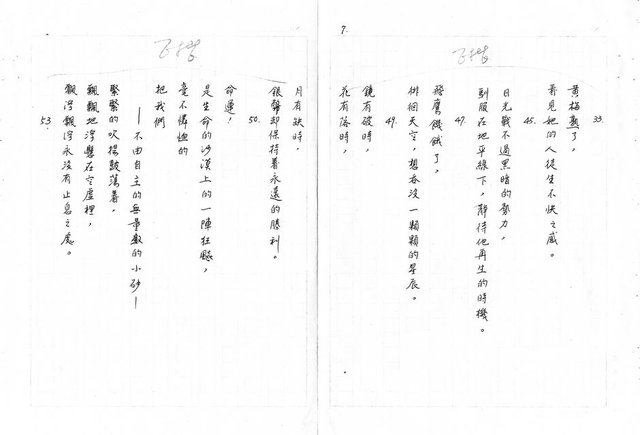 7.
33.
黃梅熟了，
看見她的人徒生不快之感。
45.
日光戰不過黑暗的勢力，
剝服在地平線下，靜待他再生的時機。
47.
饑餓了，
徘徊天空，想吞沒一顆顆的星辰。
49.
鏡有破時，
花有落時，
月有缺時，
50.
銀幣却保持着永遠的勝利。
命運！
是生命的沙漠上的一陣狂飈，
毫不憐恤的
把我們
——不由自主的無量數的小砂—
緊緊的吹揚鼓蕩着，
飄飄地浮懸在空虛裡，
飄浮飄浮永沒有止息之處。
53.